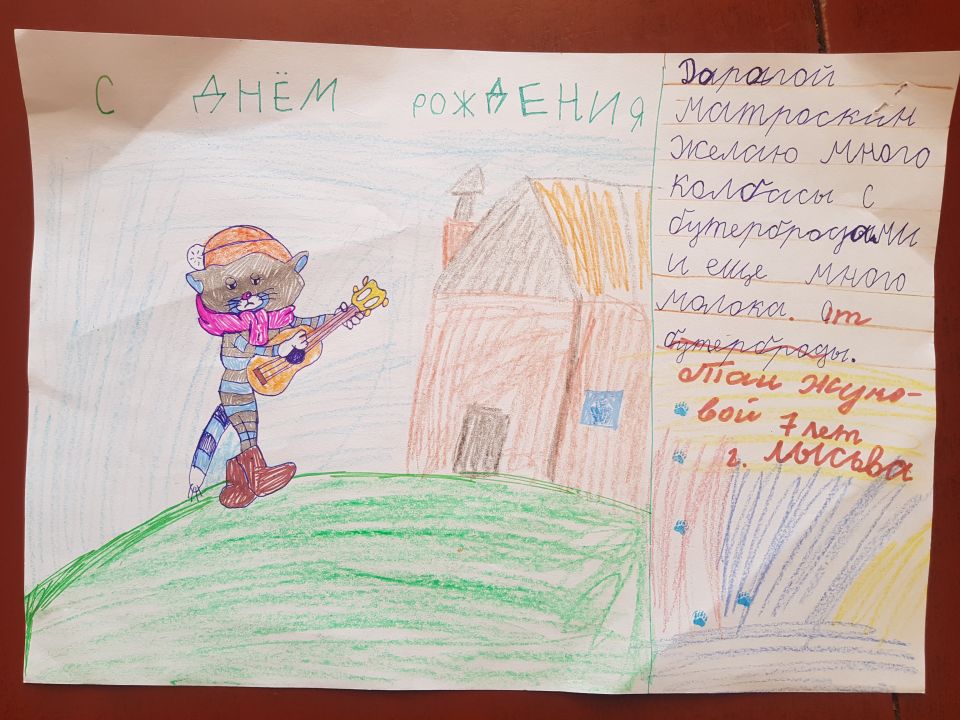 С ДНЁМ РОЖДЕНИЯ
Дарагой
Матроскин
Желаю много
колбасы с
бутербродами
и еще много
молока. От
бутерброды.
Таи Жуко-
вой 7 лет
г. Лысьва